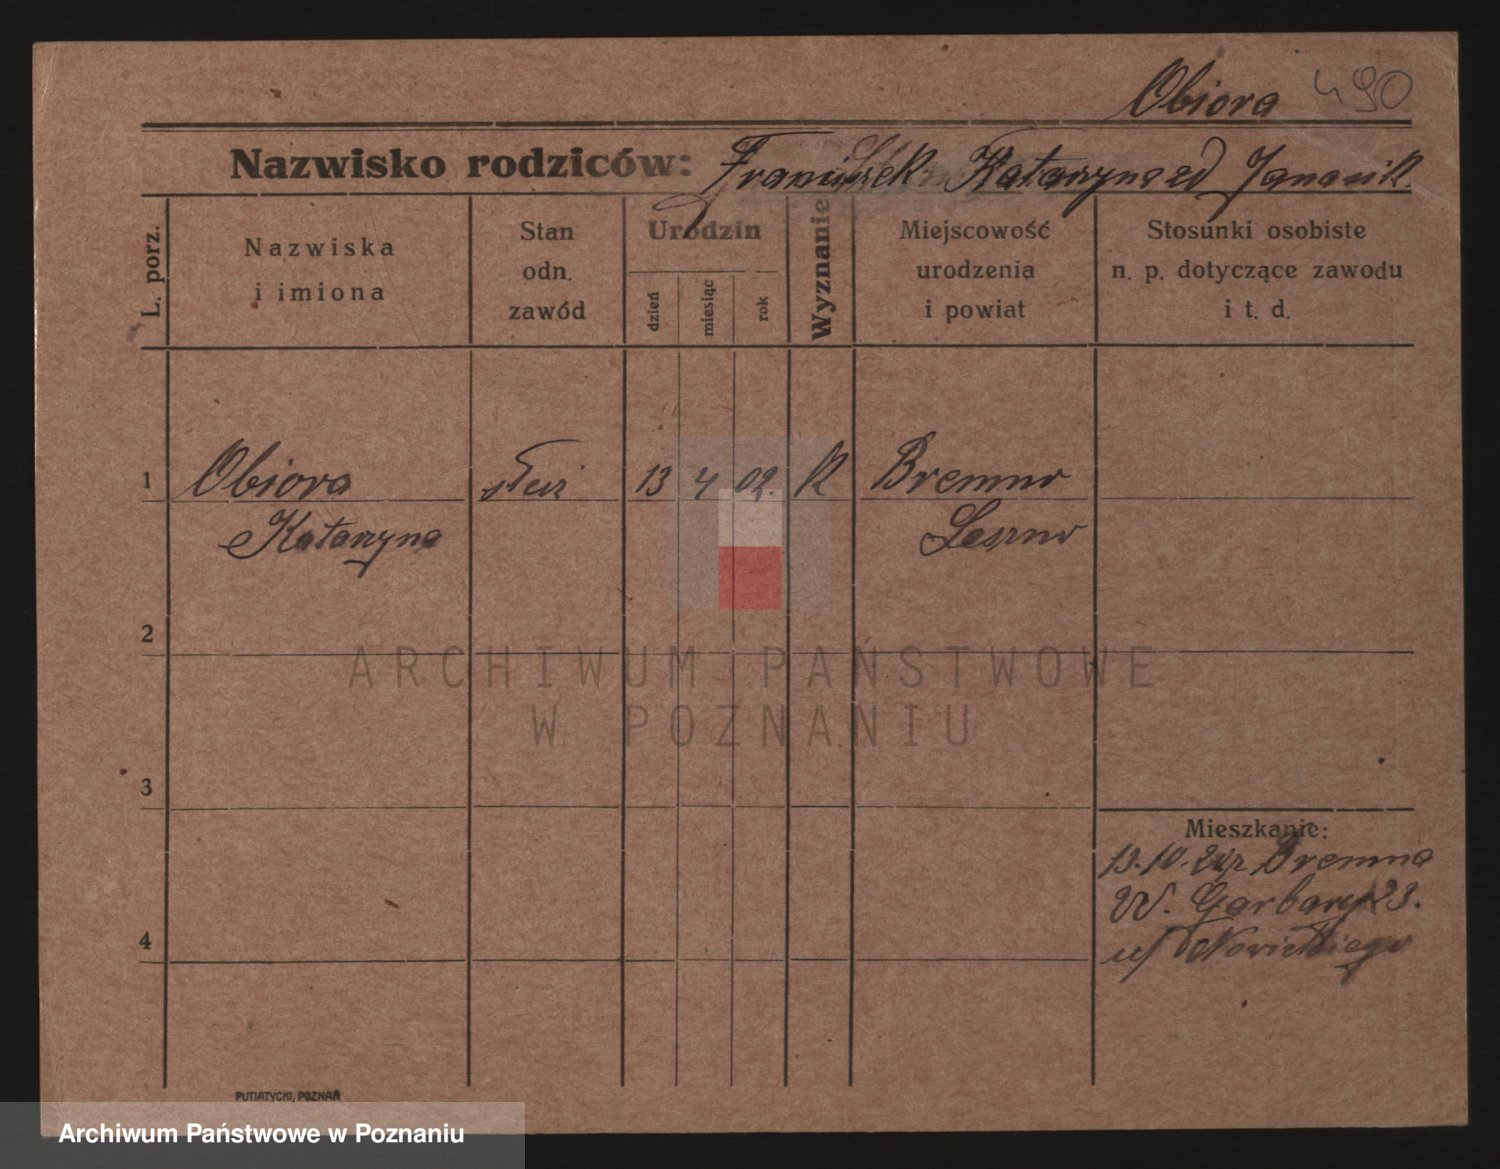 Obiora 490
Nazwisko rodziców: Franciszek Katarzyna zd Janasik
L. porz.
Nazwiska i imiona
Stan odn. zawód
Urodzin
dzień
miesiąc
rok
Wyznanie
Miejscowość urodzenia i powiat
Stosunki osobiste n. p. dotyczące zawodu i t. d.
1 Obiora służ 13 4 02. K Bremno
Katarzyna Leszno
2
ARCHIWUM PAŃSTWOWE
W POZNANIU
3
Mieszkanie:
13.10. Bremna
W. Garbary 23.
4
u/ Nowickiego
PUTIATYCKI, POZNAŃ
Archiwum Państwowe w Poznaniu